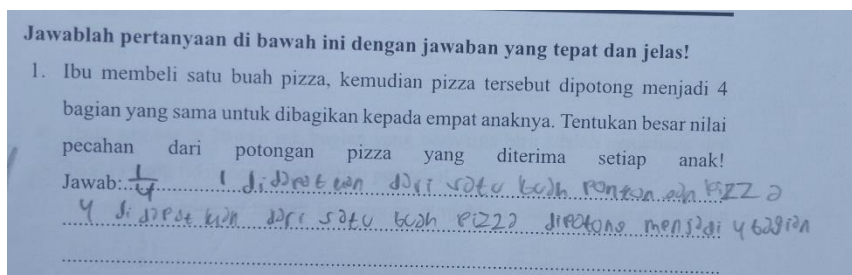 Jawablah pertanyaan di bawah ini dengan jawaban yang tepat dan jelas!
1. Ibu membeli satu buah pizza, kemudian pizza tersebut dipotong menjadi 4
bagian yang sama untuk dibagikan kepada empat anaknya. Tentukan besar nilai
pecahan dari potongan pizza yang diterima setiap anak!
Jawab: 1/4 1 di dapat kan dari satu buah pizza
4 di dapat kan dari satu buah pizza dipotong menjadi 4 bagian